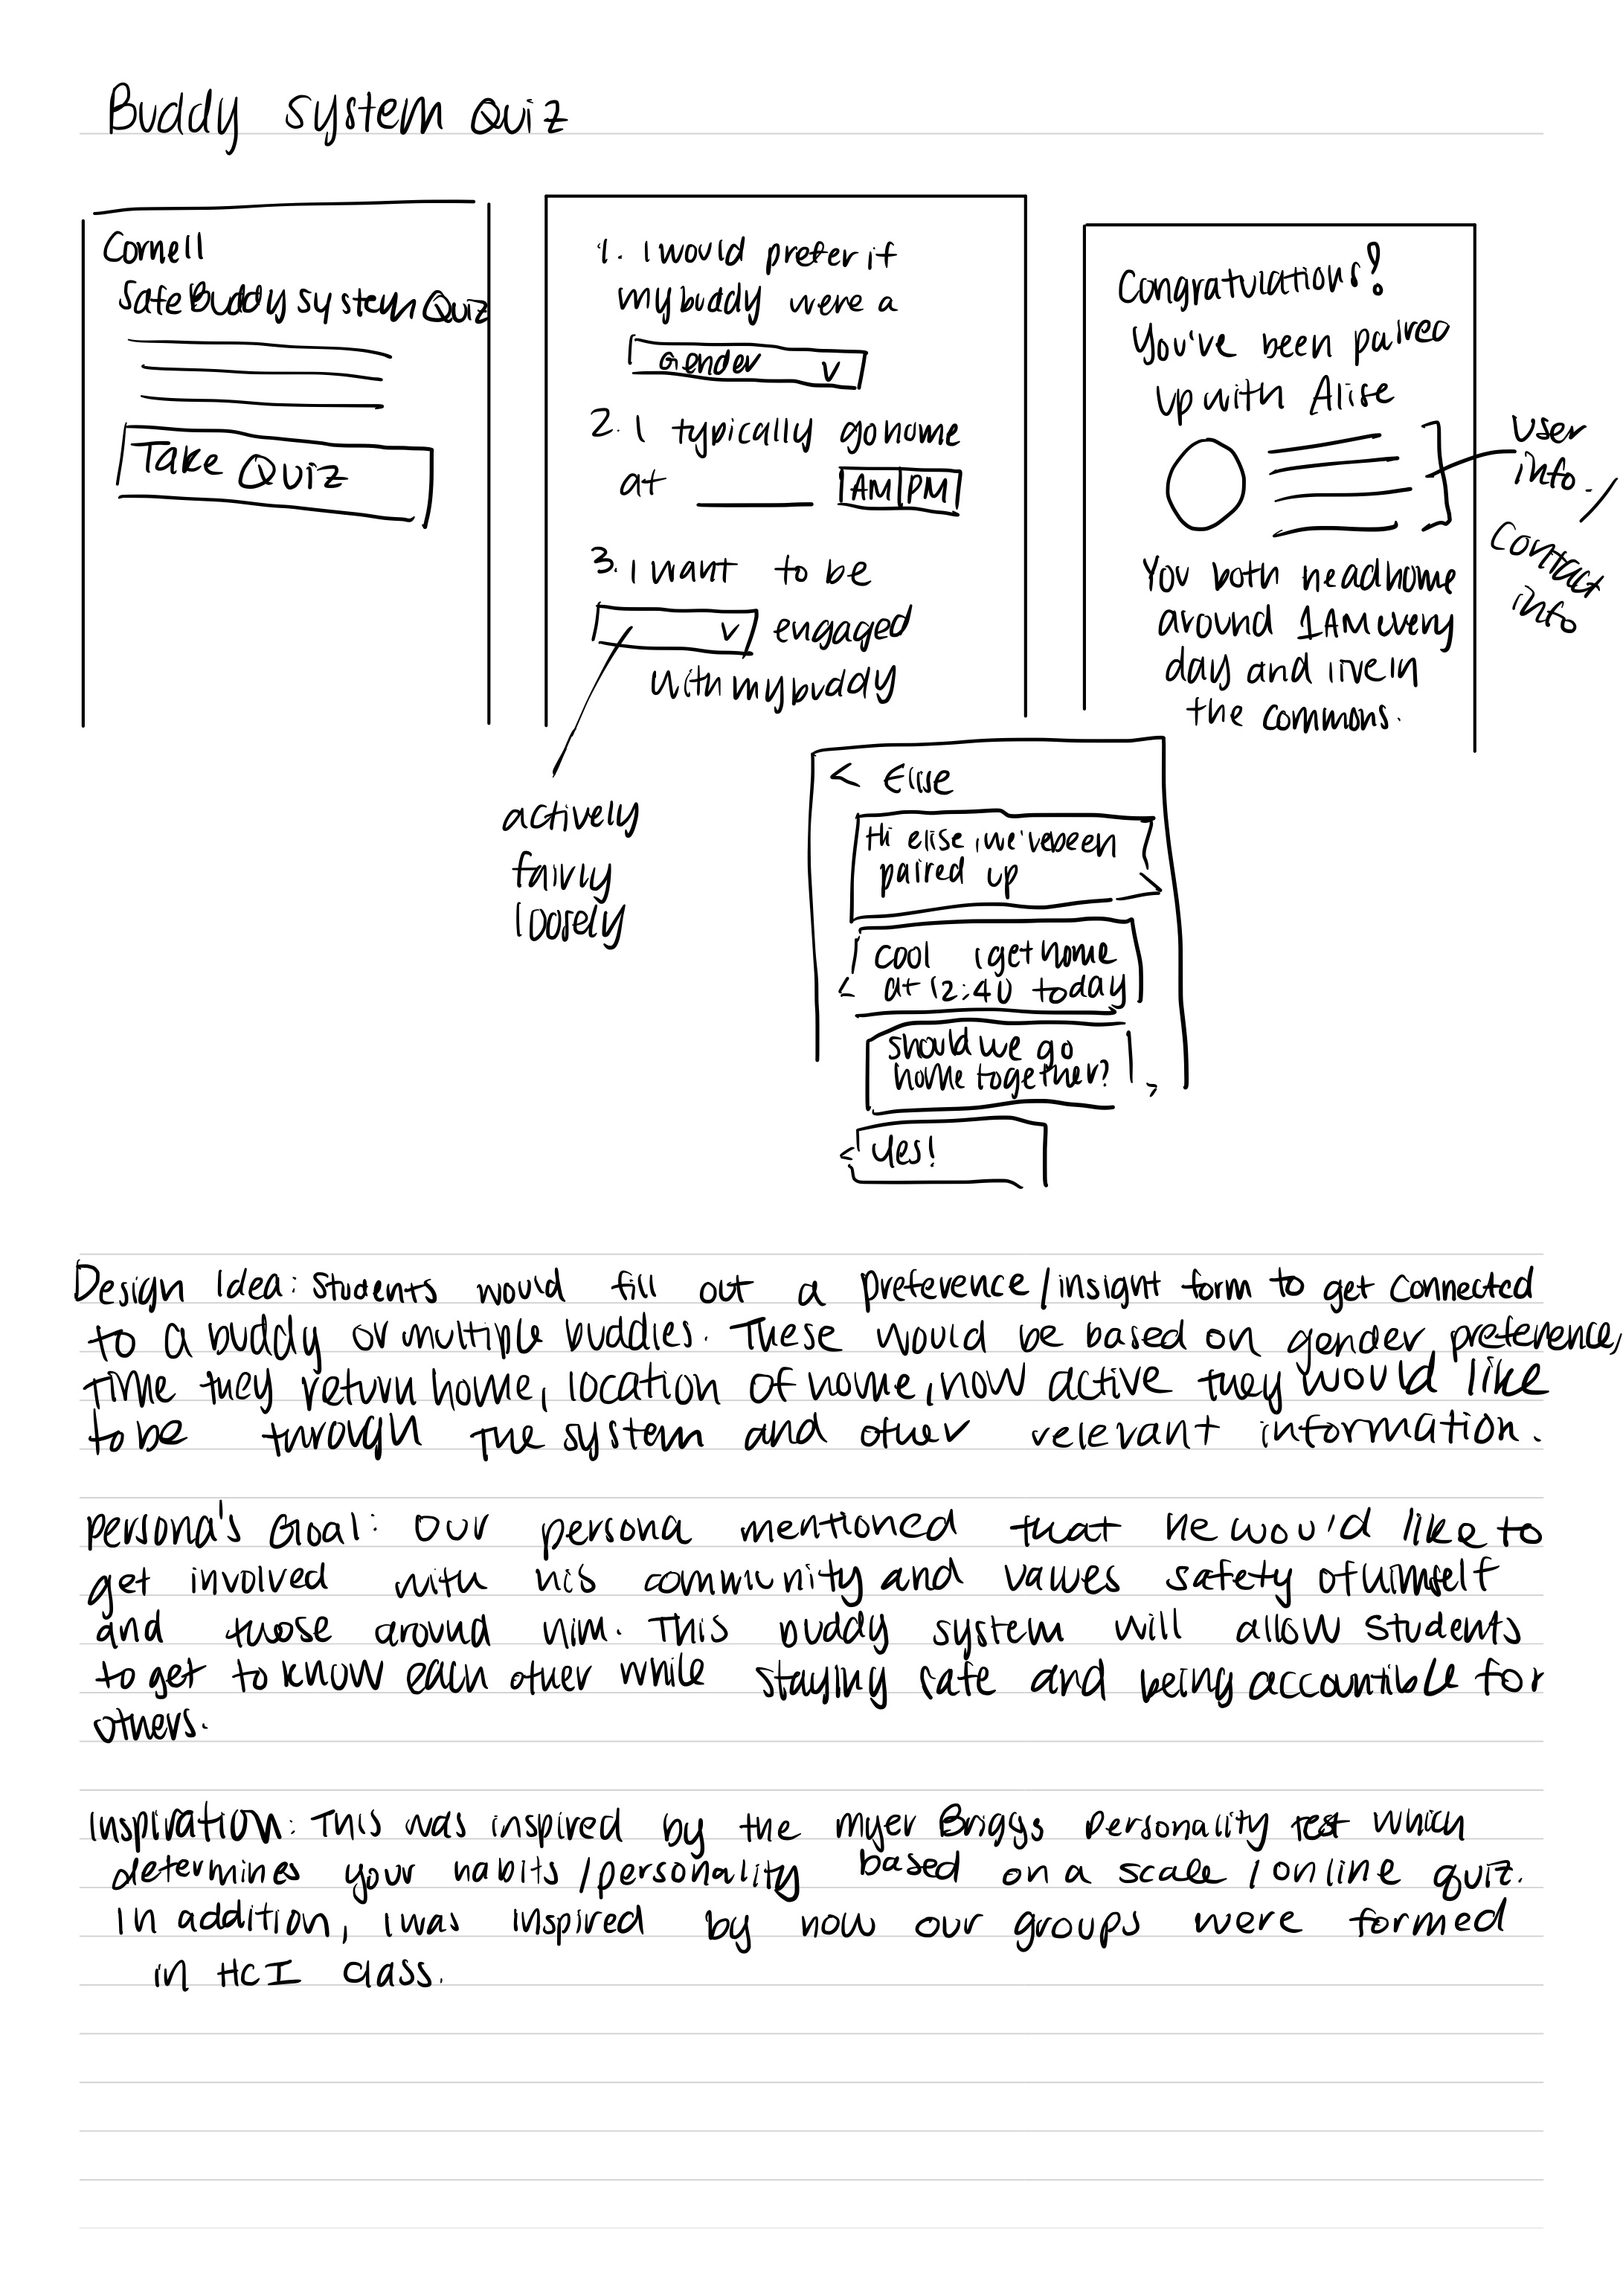 Buddy system Quiz
Cornell
Safe Buddy system Quiz
Take Quiz
1. I would prefer if
my buddy were a
Gender v
2. I typically go home
at ____ AM PM
3. I want to be
v engaged
with my buddy
actively
fairly
loosely
Congratulations!
You've been paired
up with Alise
user
info. /
contact
info
You both head home
around 1AM every
day and live in
the commons.
< Elise
Hi elise, we've been
paired up
cool i get home
at 12:40 today
should we go
home together?
Yes!
Design Idea: Students would fill out a preference/insight form to get connected
to a buddy or multiple buddies. These would be based on gender preference,
time they return home, location of home, how active they would like
to be through the system and other relevant information.
Persona's Goal: Our persona mentioned that he would like to
get involved with his community and values safety of himself
and those around him. This buddy system will allow students
to get to know each other while staying safe and being accountible for
others.
Inspiration: This was inspired by the myer Briggs Personality test which
determines your habits/personality based on a scale/online quiz.
In addition, i was inspired by how our groups were formed
in HCI class.